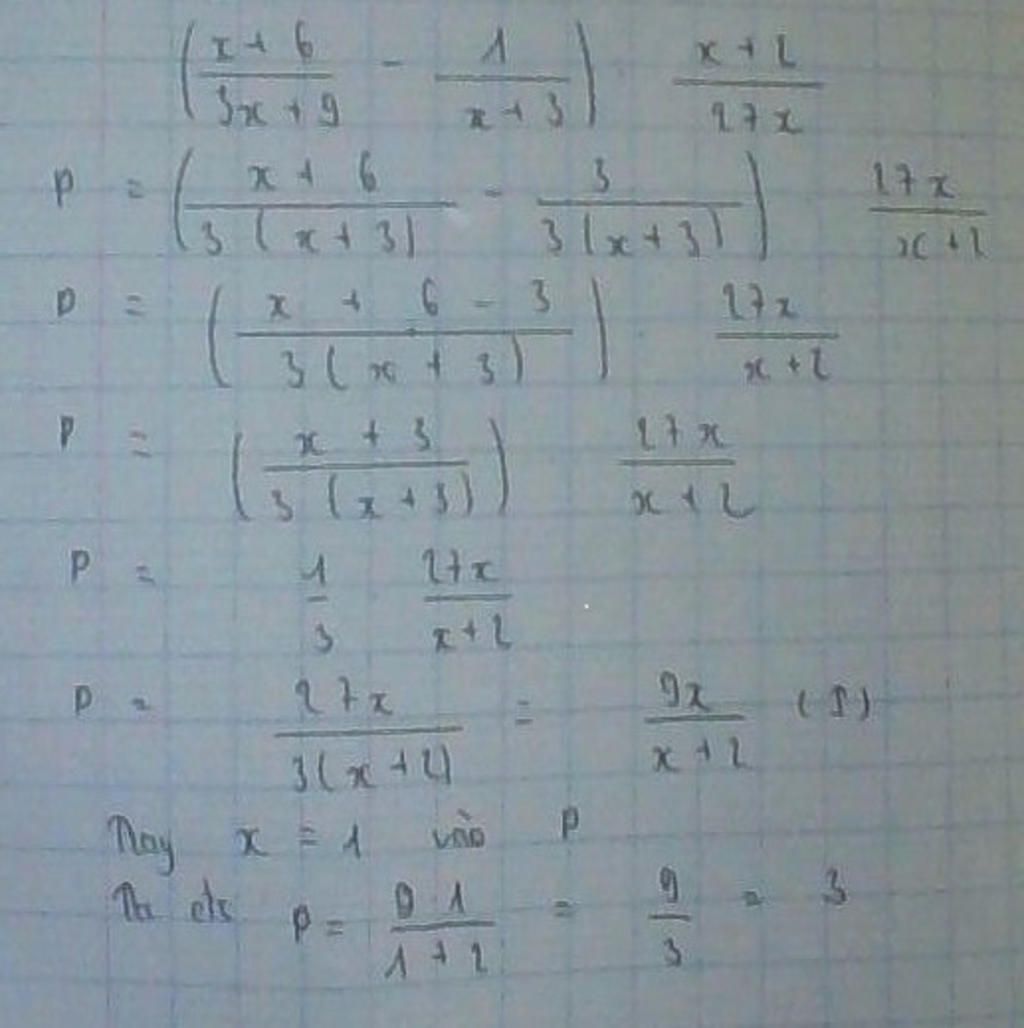 (x+6/3x+9 - 1/x+3) x+2/27x
P = (x+6/3(x+3) - 3/3(x+3)) 27x/x+2
P = (x+6-3/3(x+3)) 27x/x+2
P = (x+3/3(x+3)) 27x/x+2
P = 1/3 27x/x+2
P = 27x/3(x+2) = 9x/x+2
Thay x = 1 vào P
Ta P = 9.1/1+2 = 9/3 = 3